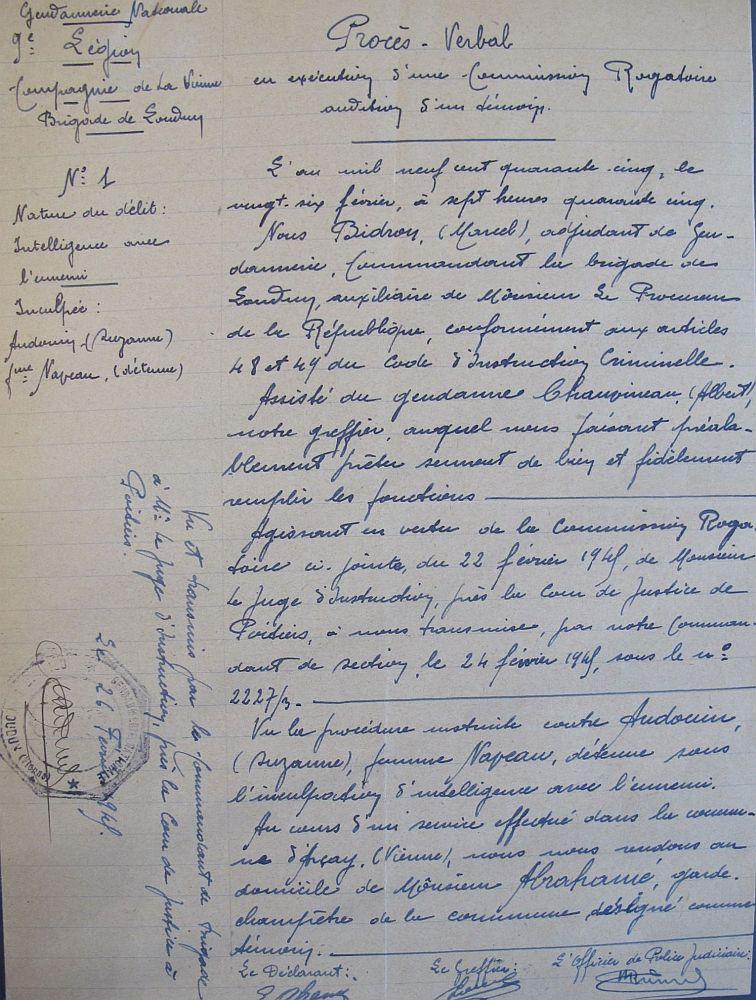 Gendarmerie Nationale
9e Légion
Compagnie de la Vienne
Brigade de Loudun
N° 1
Nature du délit:
Intelligence avec
l'ennemi
Inculpée:
Audouin (Suzanne)
fme Napeau, (détenue)
Procès-Verbal
en exécution d'une Commission Rogatoire
audition d'un témoin.
L'an mil neuf cent quarante-cinq, le
vingt-six février, à sept heures quarante cinq.
Nous Bidron, (Marcel), adjudant de Gen-
darmerie, Commandant la brigade de
Loudun, auxiliaire de Monsieur Le Procureur
de la République, conformément aux articles
48 et 49 du Code d'Instruction Criminelle.
Assisté du gendarme Chauvineau, (Albert),
notre greffier, auquel nous faisant préala-
blement prêter serment de bien et fidèlement
remplir les fonctions
Agissant en vertu de la Commission Roga-
toire ci-jointe, du 22 février 1945, de Monsieur
le Juge d'Instruction, près la Cour de Justice de
Poitiers, à nous transmise, par notre Comman-
dant de section, le 24 février 1945, sous le n°
2227/2.
Vu la procédure instruite contre Audouin,
(Suzanne), femme Napeau, détenue sous
l'inculpation d'intelligence avec l'ennemi.
Au cours d'un service effectué dans la commu-
ne d'Arçay, (Vienne), nous nous rendons au
domicile de Monsieur Abrahamé, garde-
champêtre de la commune désigné comme
témoin.
Le Déclarant:
Le Greffier:
L'Officier de Police Judiciaire:
Vu et transmis par le Commandant de brigade
à Mr le Juge d'Instruction près la Cour de Justice à
Poitiers.
Le 26 Février 1945.
LOUDUN (Vienne)